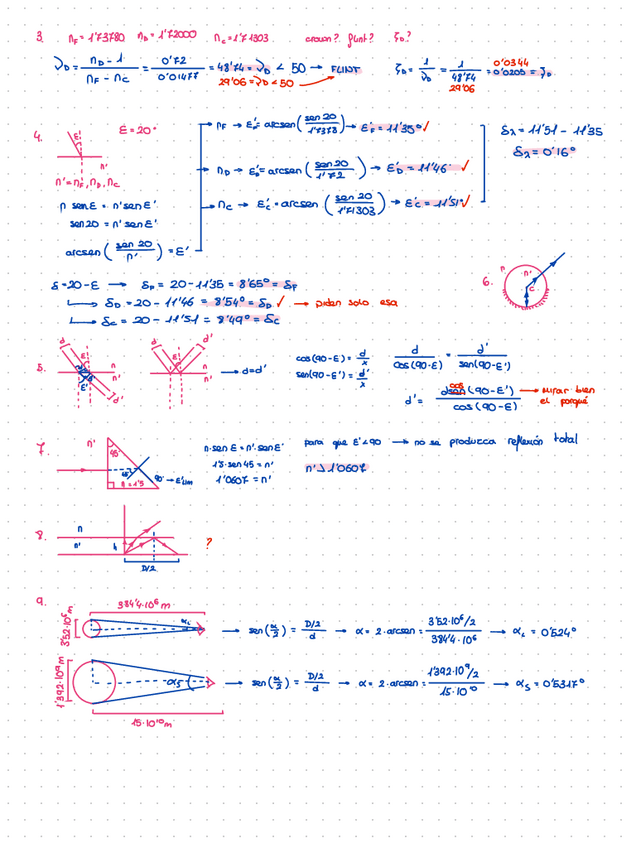 3. n_F = 1'73780 n_D = 1'72000 n_C = 1'71303 crown? flint? ζ_D?
ν_D = (n_D - 1)/(n_F - n_C) = 0'72/0'01477 = 48'74 = ν_D < 50 → FLINT
29'06 = ν_D < 50
ζ_D = 1/ν_D = 1/48'74 = 0'0205 = ζ_D
29'06 0'0344
4. ε = 20°
n' = n_F, n_D, n_C
n sen ε = n' sen ε'
sen 20 = n' sen ε'
arcsen (sen 20/n') = ε'
n_F → ε'_F = arcsen (sen 20/1'7378) → ε'_F = 11'35° ✓
n_D → ε'_D = arcsen (sen 20/1'72) → ε'_D = 11'46° ✓
n_C → ε'_C = arcsen (sen 20/1'71303) → ε'_C = 11'51° ✓
δλ = 11'51 - 11'35
δλ = 0'16°
δ = 20 - ε → δ_F = 20 - 11'35 = 8'65° = δ_F
δ_D = 20 - 11'46 = 8'54° = δ_D ✓ → piden solo esa
δ_C = 20 - 11'51 = 8'49° = δ_C
6. n n' C
5. d d' ε n n' ε' d'
d d' ε n n'
→ d = d'
cos(90 - ε) = d/x
sen(90 - ε') = d'/x
d/cos(90 - ε) = d'/sen(90 - ε')
d' = d sen (90 - ε')/cos (90 - ε) → mirar bien el porqué
cos
7. n' 45° 45° n = 1'5 90° → ε'lim
n · sen ε = n' · sen ε'
1'5 · sen 45 = n'
1'0607 = n'
para que ε' < 90 → no se produzca reflexión total
n' > 1'0607
8. n n' h D/2 ?
9. 384'4·10⁶ m
3'52·10⁶ m α_L → sen(α/2) = (D/2)/d → α = 2 · arcsen = (3'52·10⁶/2)/(384'4·10⁶) → α_L = 0'524°
1'392·10⁹ m α_S → sen(α/2) = (D/2)/d → α = 2 · arcsen = (1'392·10⁹/2)/(15·10¹⁰) → α_S = 0'5317°
15·10¹⁰ m